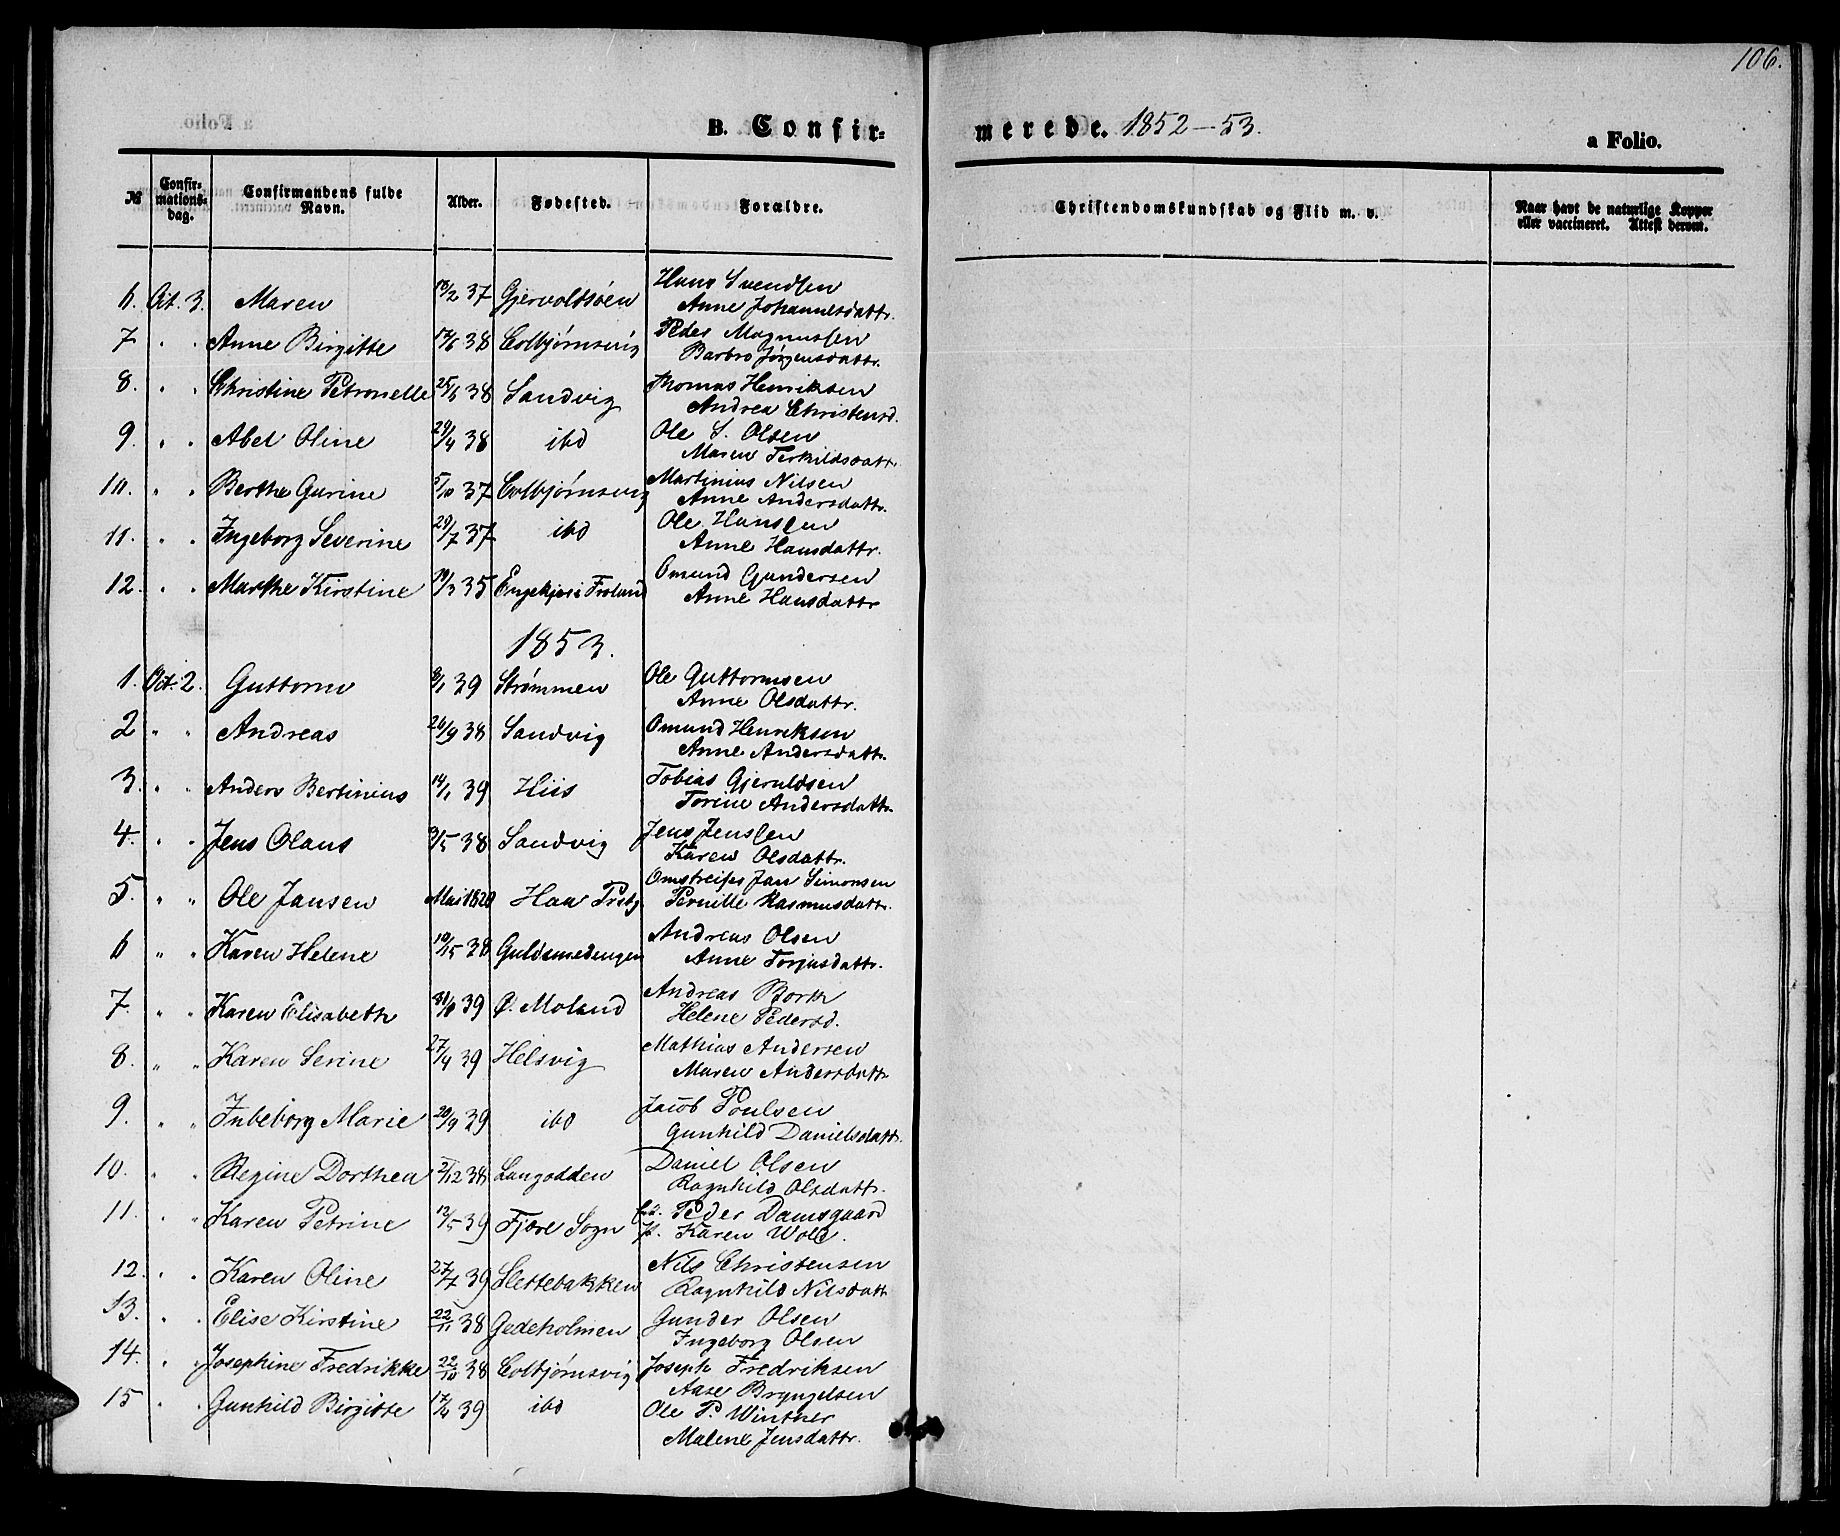 106.
B. Confir-
merede. 1852-53.
a Folio.
№ Confirmations-dag. Confirmandens fulde Navn. Alder. Fødested. Forældre.
Christendomskundskab og Flid m. v. Naar havt de naturlige Kopper eller vaccineret. Attest derom.
6. Oct. 3. Maren 37 Gjervoldsøen Hans Svendsen
Anne Johannesdattr.
7 " " Anne Birgitte 38 Colbjørnsvig Peder Magnussen
Barbro Jørgensdattr.
8. " " Christine Petronelle 25/6 38 Sandvig Thomas Henriksen
Andrea Christensd.
9. " " Abel Oline 29/4 38 ibd Ole S. Olsen
Maren Terkildsdattr.
10. " " Berthe Gurine 5/10 37 Colbjørnsvig Martinius Nilsen
Anne Andersdattr.
11. " " Ingeborg Severine 29/7 37 ibd Ole Hanssen
Anne Hansdattr.
12. " " Marthe Kirstine 19/3 35 Engekjær i Froland Omund Gundersen
Anne Hansdattr
1853.
1. Oct. 2. Guttorm 39 Strømmen Ole Guttormsen
Anne Olsdattr.
2 " " Andreas 26/9 38 Sandvig Omund Henriksen
Anne Andersdattr.
3. " " Anders Bertinius 14/1 39 Hiis Tobias Gjeruldsen
Torine Andersdattr.
4. " " Jens Olaus 9/5 38 Sandvig Jens Jenssen
Karen Olsdattr.
5. " " Ole Jansen Mai 1820 Haa Præstg. Omstreifer Jan Simonsen
Pernille Rasmusdattr.
6 " " Karen Helene 38 Guldsmedengen Andreas Olsen
Anne Torjusdattr.
7. " " Karen Elisabeth 39 Ø. Moland Andreas Borth
Helene Pedersd.
8. " " Karen Serine 27/4 39 Helsvig Mathias Andersen
Maren Andersdattr
9. " " Inbeborg Marie 20/9 39 ibd Jacob Poulsen
Gunhild Danielsdattr.
10. " " Regine Dorthea 2/12 38 Langodden Daniel Olsen
Ragnhild Olsdattr.
11. " " Karen Petrine 13/5 39 Fjære Sogn Peder Damsgaard
P. Karen Wold.
12. " " Karen Oline 39 Slettebakken Nils Christensen
Ragnhild Nilsdattr
13. " " Elise Kirstine 22/11 38 Gedeholmen Gunder Olsen
Ingeborg Olsen
14. " " Josephine Fredrikke 22/10 38 Colbjørnsvig Joseph Fredriksen
Aase Bryngelsen
15 " " Gunhild Birgitte 17/4 39 ibd Ole P. Winther
Malene Jensdattr.